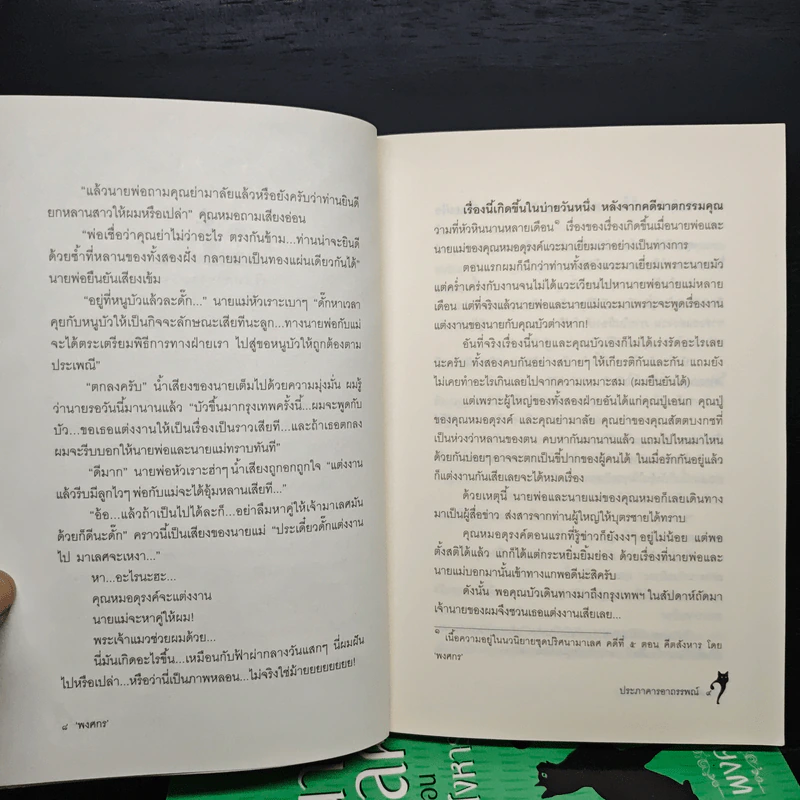 "แล้วนายพ่อถามคุณย่ามาลัยแล้วหรือยังครับว่าท่านยินดี
ยกหลานสาวให้ผมหรือเปล่า" คุณหมอถามเสียงอ่อน
"พ่อเชื่อว่าคุณย่าไม่ว่าอะไร ตรงกันข้าม...ท่านน่าจะยินดี
ด้วยซ้ำที่หลานของทั้งสองฝั่ง กลายมาเป็นทองแผ่นเดียวกันได้"
นายพ่อยืนยันเสียงเข้ม
"อยู่ที่หนูบัวแล้วละดั๊ก..." นายแม่หัวเราะเบาๆ "ดั๊กหาเวลา
คุยกับหนูบัวให้เป็นกิจจะลักษณะเสียทีนะลูก...ทางนายพ่อกับแม่
จะได้ตระเตรียมพิธีการทางฝ่ายเรา ไปสู่ขอหนูบัวให้ถูกต้องตาม
ประเพณี"
"ตกลงครับ" น้ำเสียงของนายเต็มไปด้วยความมุ่งมั่น ผมรู้
ว่านายรอวันนี้มานานแล้ว "บัวขึ้นมากรุงเทพครั้งนี้...ผมจะพูดกับ
บัว...ขอเธอแต่งงานให้เป็นเรื่องเป็นราวเสียที...และถ้าเธอตกลง
ผมจะรีบบอกให้นายพ่อและนายแม่ทราบทันที"
"ดีมาก" นายพ่อหัวเราะฮ่าๆ น้ำเสียงถูกอกถูกใจ "แต่งงาน
แล้วรีบมีลูกไวๆ พ่อกับแม่จะได้อุ้มหลานเสียที..."
"อ้อ...แล้วถ้าเป็นไปได้ละก็...อย่าลืมหาคู่ให้เจ้ามาเลศมัน
ด้วยก็ดีนะดั๊ก" คราวนี้เป็นเสียงของนายแม่ "ประเดี๋ยวดั๊กแต่งงาน
ไป มาเลศจะเหงา..."
หา...อะไรนะฮะ...
คุณหมอดุรงค์จะแต่งงาน
นายแม่จะหาคู่ให้ผม!
พระเจ้าแมวช่วยผมด้วย...
นี่มันเกิดอะไรขึ้น...เหมือนกับฟ้าผ่ากลางวันแสกๆ นี่ผมฝัน
ไปหรือเปล่า...หรือว่านี่เป็นภาพหลอน...ไม่จริงใช่ม้ายยยยยยย!
๘ 'พงศกร'
เรื่องนี้เกิดขึ้นในบ่ายวันหนึ่ง หลังจากคดีฆาตกรรมคุณ
วามที่หัวหินนานหลายเดือน๑ เรื่องของเรื่องเกิดขึ้นเมื่อนายพ่อและ
นายแม่ของคุณหมอดุรงค์แวะมาเยี่ยมเราอย่างเป็นทางการ
ตอนแรกผมก็นึกว่าท่านทั้งสองแวะมาเยี่ยมเพราะนายมัว
แต่คร่ำเคร่งกับงานจนไม่ได้แวะเวียนไปหานายพ่อนายแม่หลาย
เดือน แต่ที่จริงแล้วนายพ่อและนายแม่แวะมาเพราะจะพูดเรื่องงาน
แต่งงานของนายกับคุณบัวต่างหาก!
อันที่จริงเรื่องนี้นายและคุณบัวเองก็ไม่ได้เร่งรัดอะไรเลย
นะครับ ทั้งสองคบกันอย่างสบายๆ ให้เกียรติกันและกัน แถมยัง
ไม่เคยทำอะไรเกินเลยไปจากความเหมาะสม (ผมยืนยันได้)
แต่เพราะผู้ใหญ่ของทั้งสองฝ่ายอันได้แก่คุณปู่เอนก คุณปู่
ของคุณหมอดุรงค์ และคุณย่ามาลัย คุณย่าของคุณสัตตบงกชที่
เป็นห่วงว่าหลานของตน คบหากันมานานแล้ว แถมไปไหนมาไหน
ด้วยกันบ่อยๆ อาจจะตกเป็นขี้ปากของผู้คนได้ ในเมื่อรักกันอยู่แล้ว
ก็แต่งงานกันเสียเลยจะได้หมดเรื่อง
ด้วยเหตุนี้ นายพ่อและนายแม่ของคุณหมอก็เลยเดินทาง
มาเป็นผู้สื่อข่าว ส่งสารจากท่านผู้ใหญ่ให้บุตรชายได้ทราบ
คุณหมอดุรงค์ตอนแรกที่รู้ข่าวก็ยังงงๆ อยู่ไม่น้อย แต่พอ
ตั้งสติได้แล้ว แกก็ได้แต่กระหยิ่มยิ้มย่อง ด้วยเรื่องที่นายพ่อและ
นายแม่บอกมานั้นเข้าทางแกพอดีน่ะสิครับ
ดังนั้น พอคุณบัวเดินทางมาถึงกรุงเทพฯ ในสัปดาห์ถัดมา
เจ้านายของผมจึงชวนเธอแต่งงานเสียเลย...
๑ เนื้อความอยู่ในนวนิยายชุดปริศนามาเลศ คดีที่ ๕ ตอน คีตสังหาร โดย
'พงศกร'
ประภาคารอาถรรพณ์ ๙